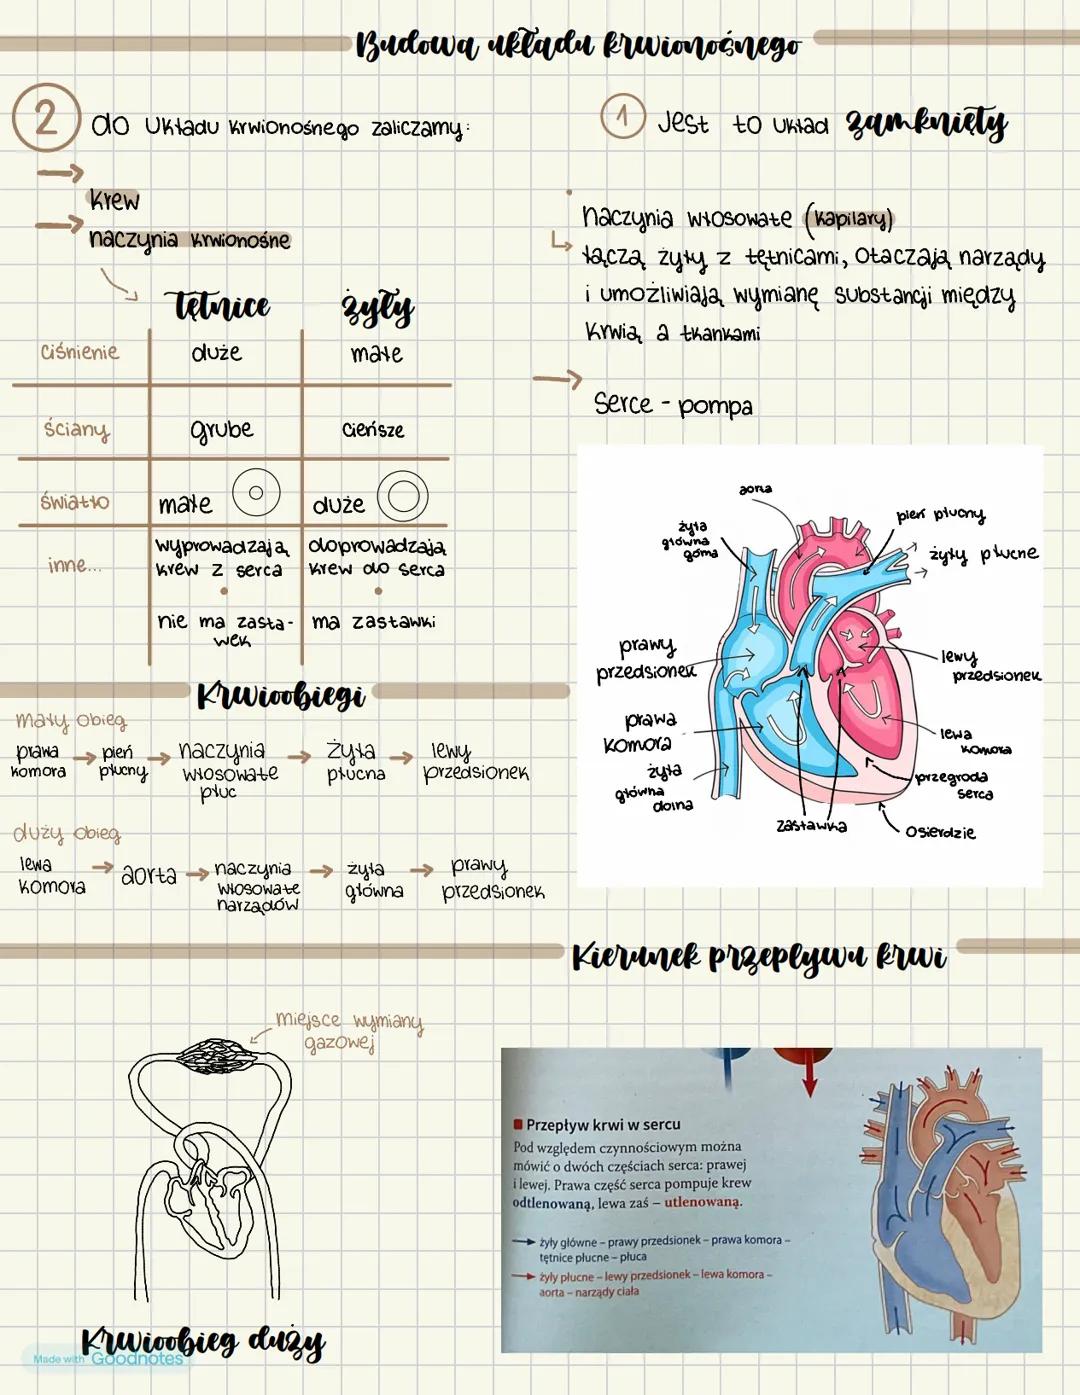 Budowa układu krwionośnego
2 do układu krwionośnego zaliczamy:
krew
naczynia krwionośne
tętnice żyły
ciśnienie duże małe
ściany grube cieńsze
światło małe duże
inne... wyprowadzają krew z serca doprowadzają krew do serca
nie ma zasta-
wek
ma zastawki
1 Jest to układ zamknięty
naczynia włosowate (kapilary)
łączą żyły z tętnicami, otaczają narządy
i umożliwiają wymianę substancji między
krwią a tkankami
Serce - pompa
aorta
żyła
główna
górna
pień płucny
żyły płucne
prawy
przedsionek
lewy
przedsionek
prawa
komora
lewa
komora
żyła
główna
dolna
przegroda
serca
zastawka
osierdzie
Krwioobiegi
mały obieg
prawa
komora
pień
płucny
naczynia
włosowate
płuc
żyła
płucna
lewy
przedsionek
duży obieg
lewa
komora
aorta
naczynia
włosowate
narządów
żyła
główna
prawy
przedsionek
Kierunek przepływu krwi
miejsce wymiany
gazowej
Krwioobieg duży
Made with Goodnotes
Przepływ krwi w sercu
Pod względem czynnościowym można
mówić o dwóch częściach serca: prawej
i lewej. Prawa część serca pompuje krew
odtlenowaną, lewa zaś – utlenowaną.
żyły główne – prawy przedsionek – prawa komora –
tętnice płucne – płuca
żyły płucne – lewy przedsionek – lewa komora –
aorta – narządy ciała